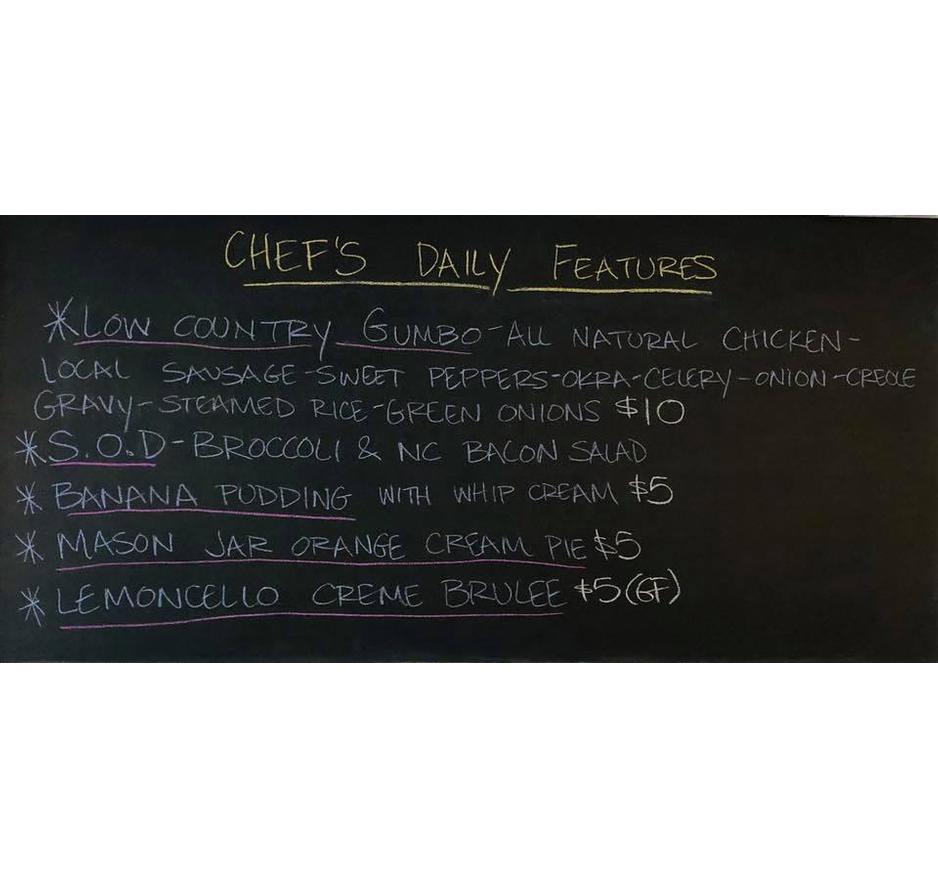 CHEF'S DAILY FEATURES
*LOW COUNTRY GUMBO-ALL NATURAL CHICKEN-
LOCAL SAUSAGE-SWEET PEPPERS-OKRA-CELERY-ONION-CREOLE
GRAVY-STEAMED RICE-GREEN ONIONS $10
*S.O.D-BROCCOLI & NC BACON SALAD
* BANANA PUDDING WITH WHIP CREAM $5
* MASON JAR ORANGE CREAM PIE $5
* LEMONCELLO CREME BRULEE $5(GF)